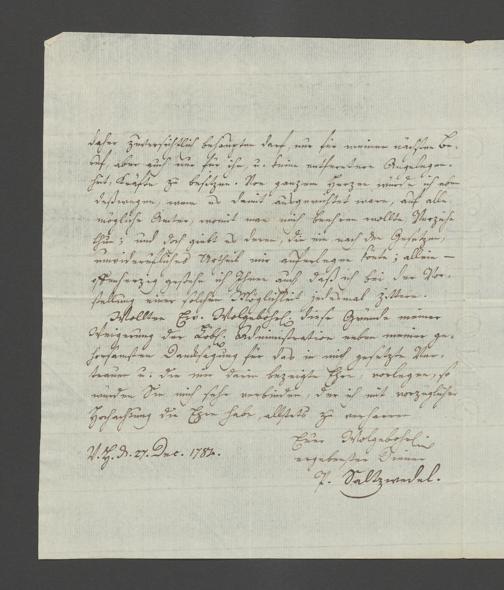 daher zuversichtlich behaupten darf, nur für meinen nächsten Be-
ruf, aber auch nur für ihn, u. keine entferntere Angelegen-
heit, Kräfte zu besitzen. Von ganzem Herzen würde ich eben
deßwegen, wenn es damit ausgerichtet wäre, auf alle
mögliche Güter, womit man mich beehren wollte Verzicht
thun; und doch giebt es deren, die mir nach den Gesetzen,
unwiderrufliches Urtheil mir auferlegen könte; allein —
offenherzig gestehe ich Ihnen auch daß ich bei der Vor-
stellung einer solchen Möglichkeit jedesmal zittere.
Wollten Ew. Wolgebohrn diese Gründe meiner
Weigerung der Löbl. Administration neben meiner ge-
horsamsten Danksagung für das in mich gesetzte Ver-
trauen u. die mir darin bezeigte Ehre, vorlegen, so
würden Sie mich sehr verbinden, der ich mit vorzüglicher
Hochachtung die Ehre habe, allstets zu verharren
V. H. d. 27. Dec. 1782.
Euer Wolgebohrn
ergebenster Diener
P. Saltzwedel.